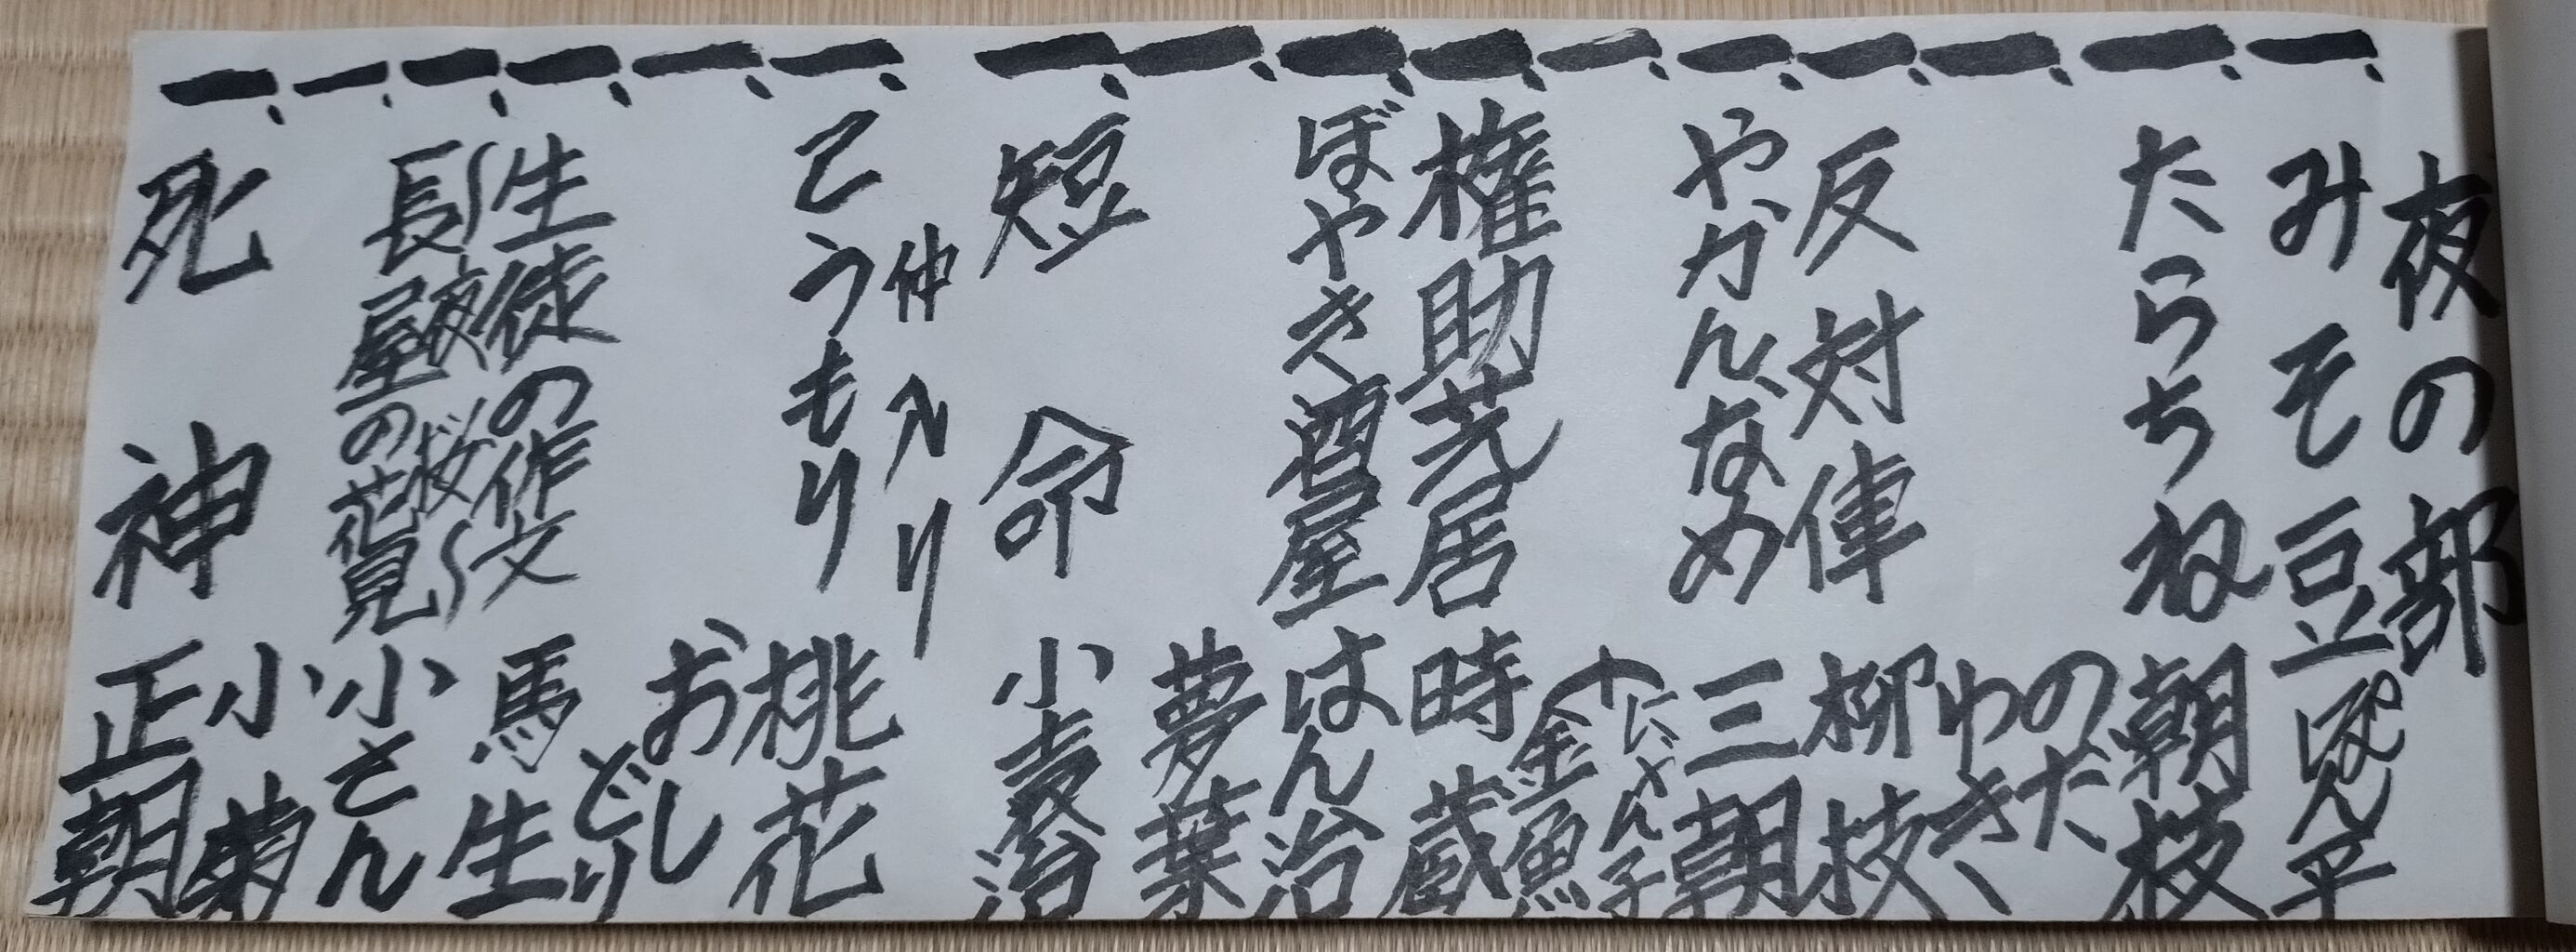 夜の部
一、みそ豆 ぽん平
一、たらちね 朝枝
一、のだゆき
一、反対俥 柳枝
一、やかんなめ 三朝
一、にゃん子 金魚
一、権助芝居 時蔵
一、ぼやき酒屋 はん治
一、夢葉
一、短命 小袁治
仲入り
一、こうもり 桃花
一、おしどり
一、生徒の作文 馬生
一、長屋の花見 小さん
〜夜桜〜
一、小菊
一、死神 正朝